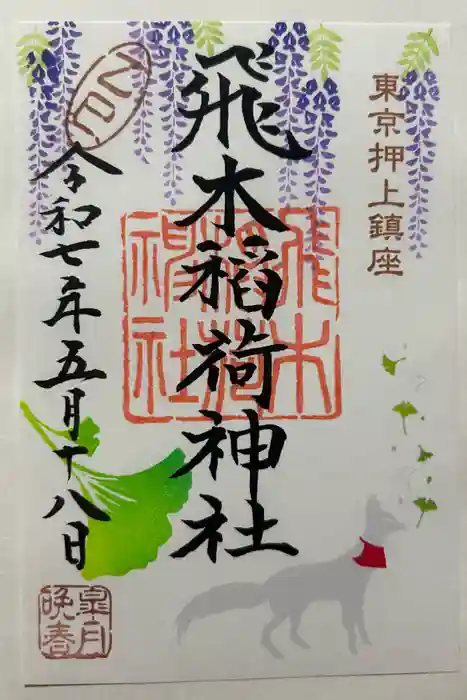 東京押上鎮座
飛木稲荷神社
飛木
稲荷
神社
令和七年五月十八日
皐月
晩春